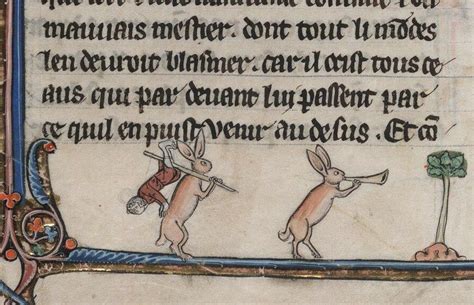 mauuais mestier. dont tout li mõdes
len deuroit blasmer. car il ocist tous ce
aus qui par deuant lui passent par
ce quil en puist venir au desus. Et cõ